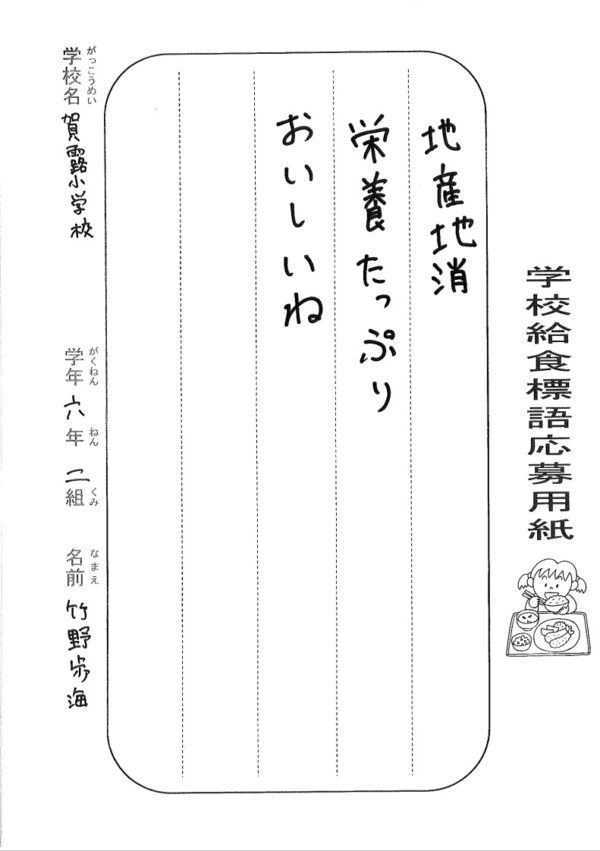 学校給食標語応募用紙
地産地消
栄養たっぷり
おいしいね
学校名 賀露小学校 学年 六年 二組 名前 竹野歩海
がっこうめい がくねん ねん くみ なまえ